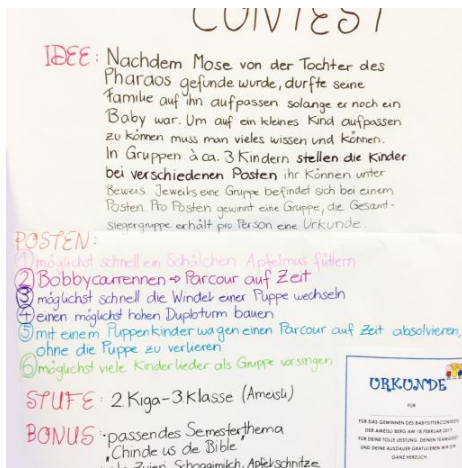 CONTEST
IDEE: Nachdem Mose von der Tochter des
Pharaos gefunde wurde, durfte seine
Familie auf ihn aufpassen solange er noch ein
Baby war. Um auf ein kleines Kind aufpassen
zu können muss man vieles wissen und können.
In Gruppen à ca. 3 Kindern stellen die Kinder
bei verschiedenen Posten ihr Können unter
Beweis. Jeweils eine Gruppe befindet sich bei einem
Posten. Pro Posten gewinnt eine Gruppe, die Gesamt-
siegergruppe erhält pro Person eine Urkunde.
POSTEN:
1 möglichst schnell ein Schälchen Apfelmus füttern
2 Bobbycarrennen → Parcour auf Zeit
3 möglichst schnell die Windel einer Puppe wechseln
4 einen möglichst hohen Duploturm bauen
5 mit einem Puppenkinderwagen einen Parcour auf Zeit absolvieren,
ohne die Puppe zu verlieren
6 möglichst viele Kinderlieder als Gruppe vorsingen
STUFE: 2.Kiga-3.Klasse (Ameisli)
BONUS: -passendes Semesterthema
"Chinde us de Bible"
Schoggimilch, Apfelschnitze
URKUNDE
FÜR
FÜR DAS GEWINNEN DES BABYSITTERCONTESTS
DER AMEISLI BERG AM 18.FEBRUAR 2017
FÜR DEINE TOLLE LEISTUNG, DEINEN TEAMGEIST
UND DEINE AUSDAUER GRATULIEREN WIR DIR
GANZ HERZLICH